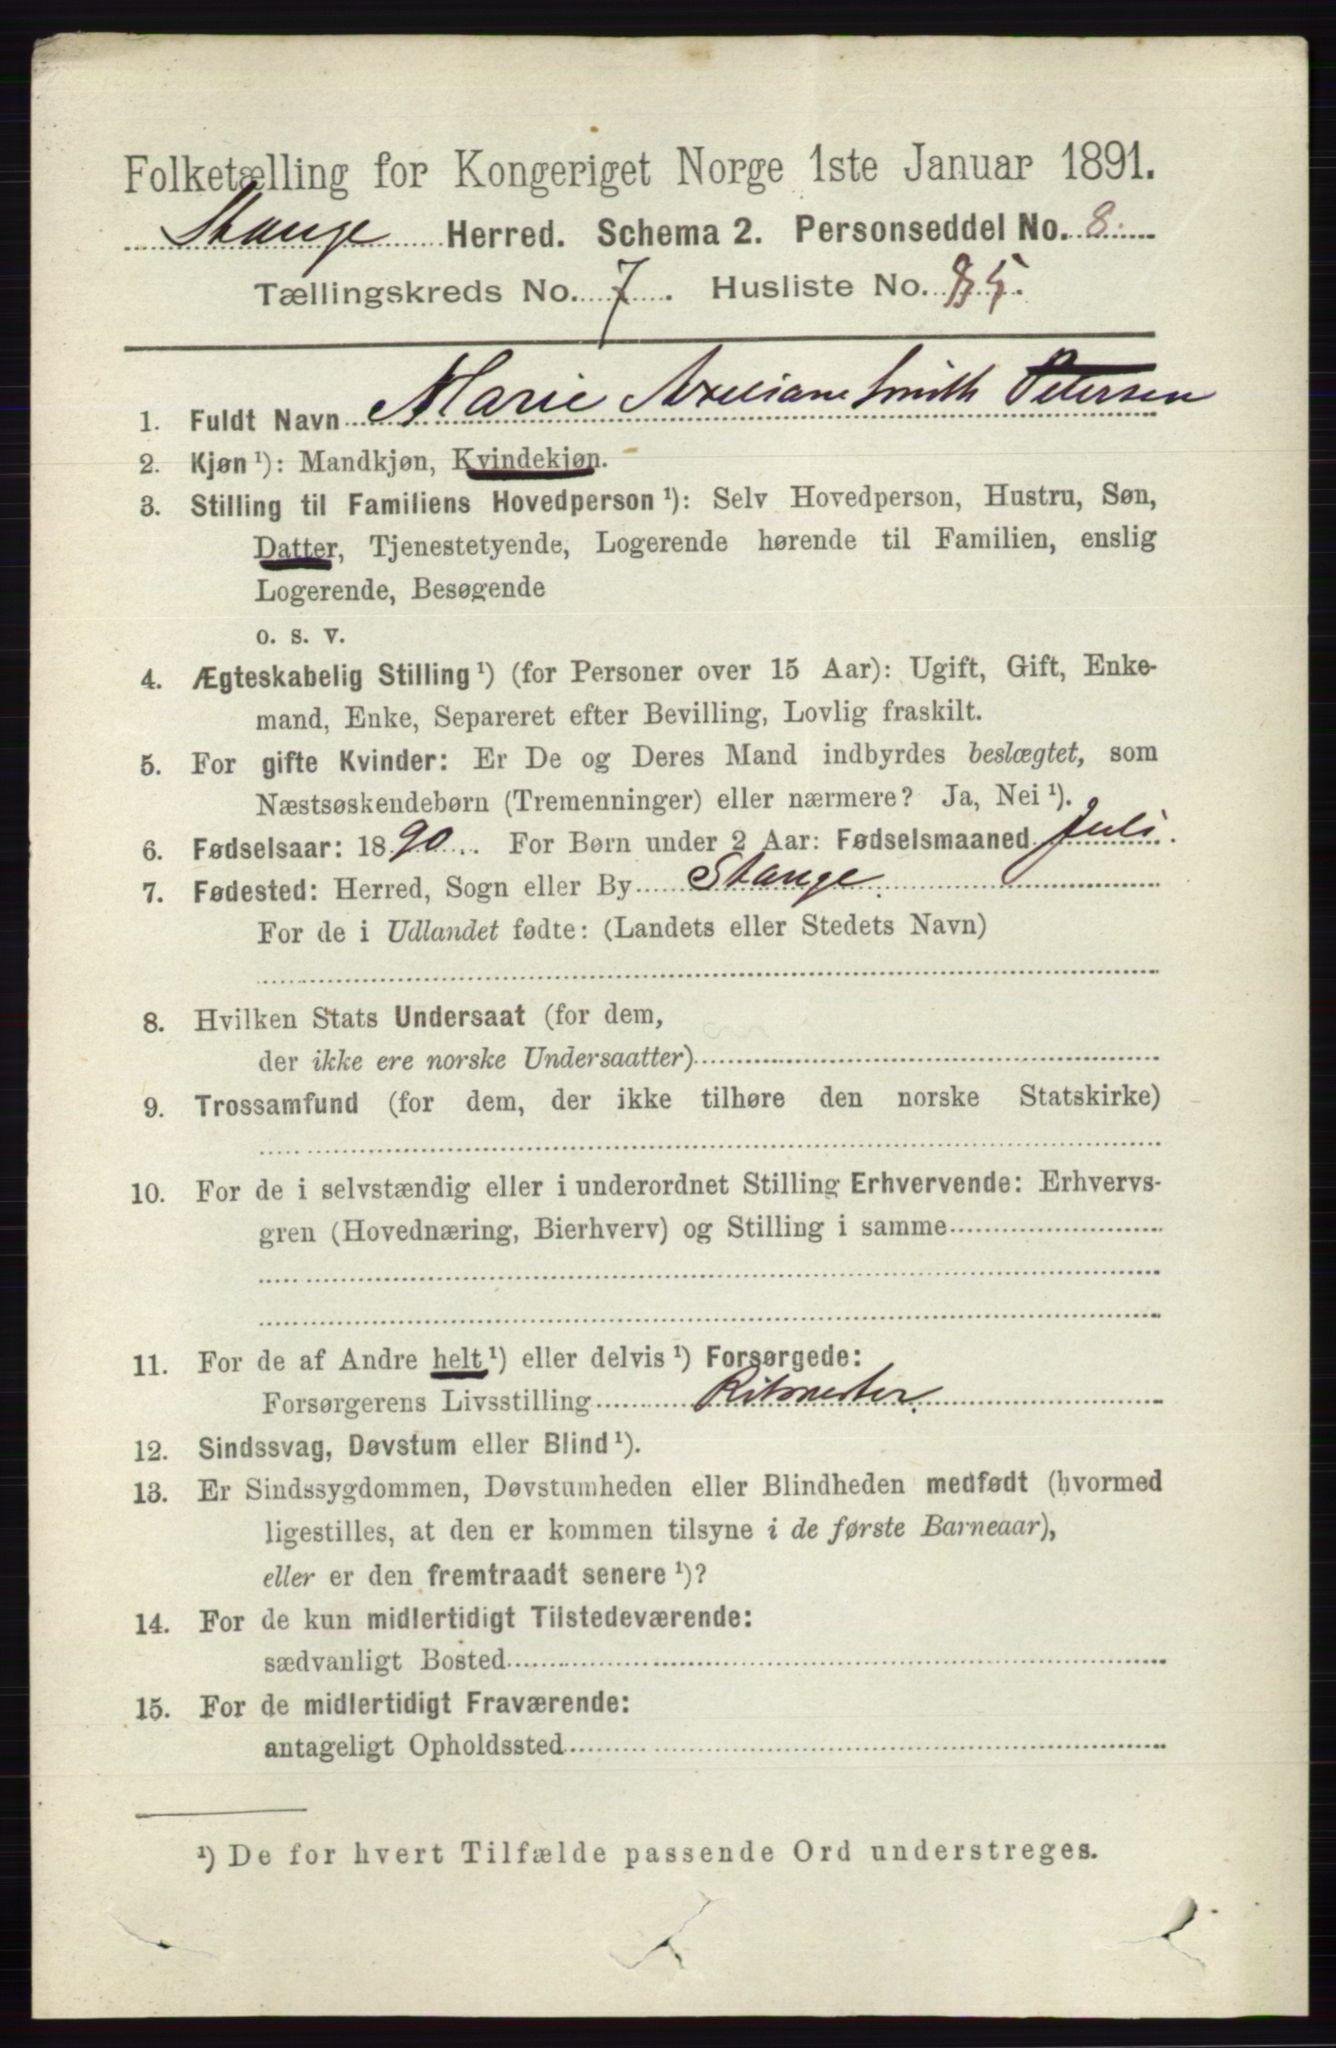 Folketælling for Kongeriget Norge 1ste Januar 1891.
Stange Herred. Schema 2. Personseddel No. 8.
Tællingskreds No. 7. Husliste No. 85.
1. Fuldt Navn Marie Axeliane Smith Petersen
2. Kjøn ¹): Mandkjøn, Kvindekjøn.
3. Stilling til Familiens Hovedperson ¹): Selv Hovedperson, Hustru, Søn,
Datter, Tjenestetyende, Logerende hørende til Familien, enslig
Logerende, Besøgende
o. s. v.
4. Ægteskabelig Stilling ¹) (for Personer over 15 Aar): Ugift, Gift, Enke-
mand, Enke, Separeret efter Bevilling, Lovlig fraskilt.
5. For gifte Kvinder: Er De og Deres Mand indbyrdes beslægtet, som
Næstsøskendebørn (Tremenninger) eller nærmere? Ja, Nei ¹).
6. Fødselsaar: 1890. For Børn under 2 Aar: Fødselsmaaned Juli.
7. Fødested: Herred, Sogn eller By Stange.
For de i Udlandet fødte: (Landets eller Stedets Navn)
8. Hvilken Stats Undersaat (for dem,
der ikke ere norske Undersaatter)
9. Trossamfund (for dem, der ikke tilhøre den norske Statskirke)
10. For de i selvstændig eller i underordnet Stilling Erhvervende: Erhvervs-
gren (Hovednæring, Bierhverv) og Stilling i samme
11. For de af Andre helt ¹) eller delvis ¹) Forsørgede:
Forsørgerens Livsstilling Ritmester.
12. Sindssvag, Døvstum eller Blind ¹).
13. Er Sindssygdommen, Døvstumheden eller Blindheden medfødt (hvormed
ligestilles, at den er kommen tilsyne i de første Barneaar),
eller er den fremtraadt senere ¹)?
14. For de kun midlertidigt Tilstedeværende:
sædvanligt Bosted
15. For de midlertidigt Fraværende:
antageligt Opholdssted
¹) De for hvert Tilfælde passende Ord understreges.